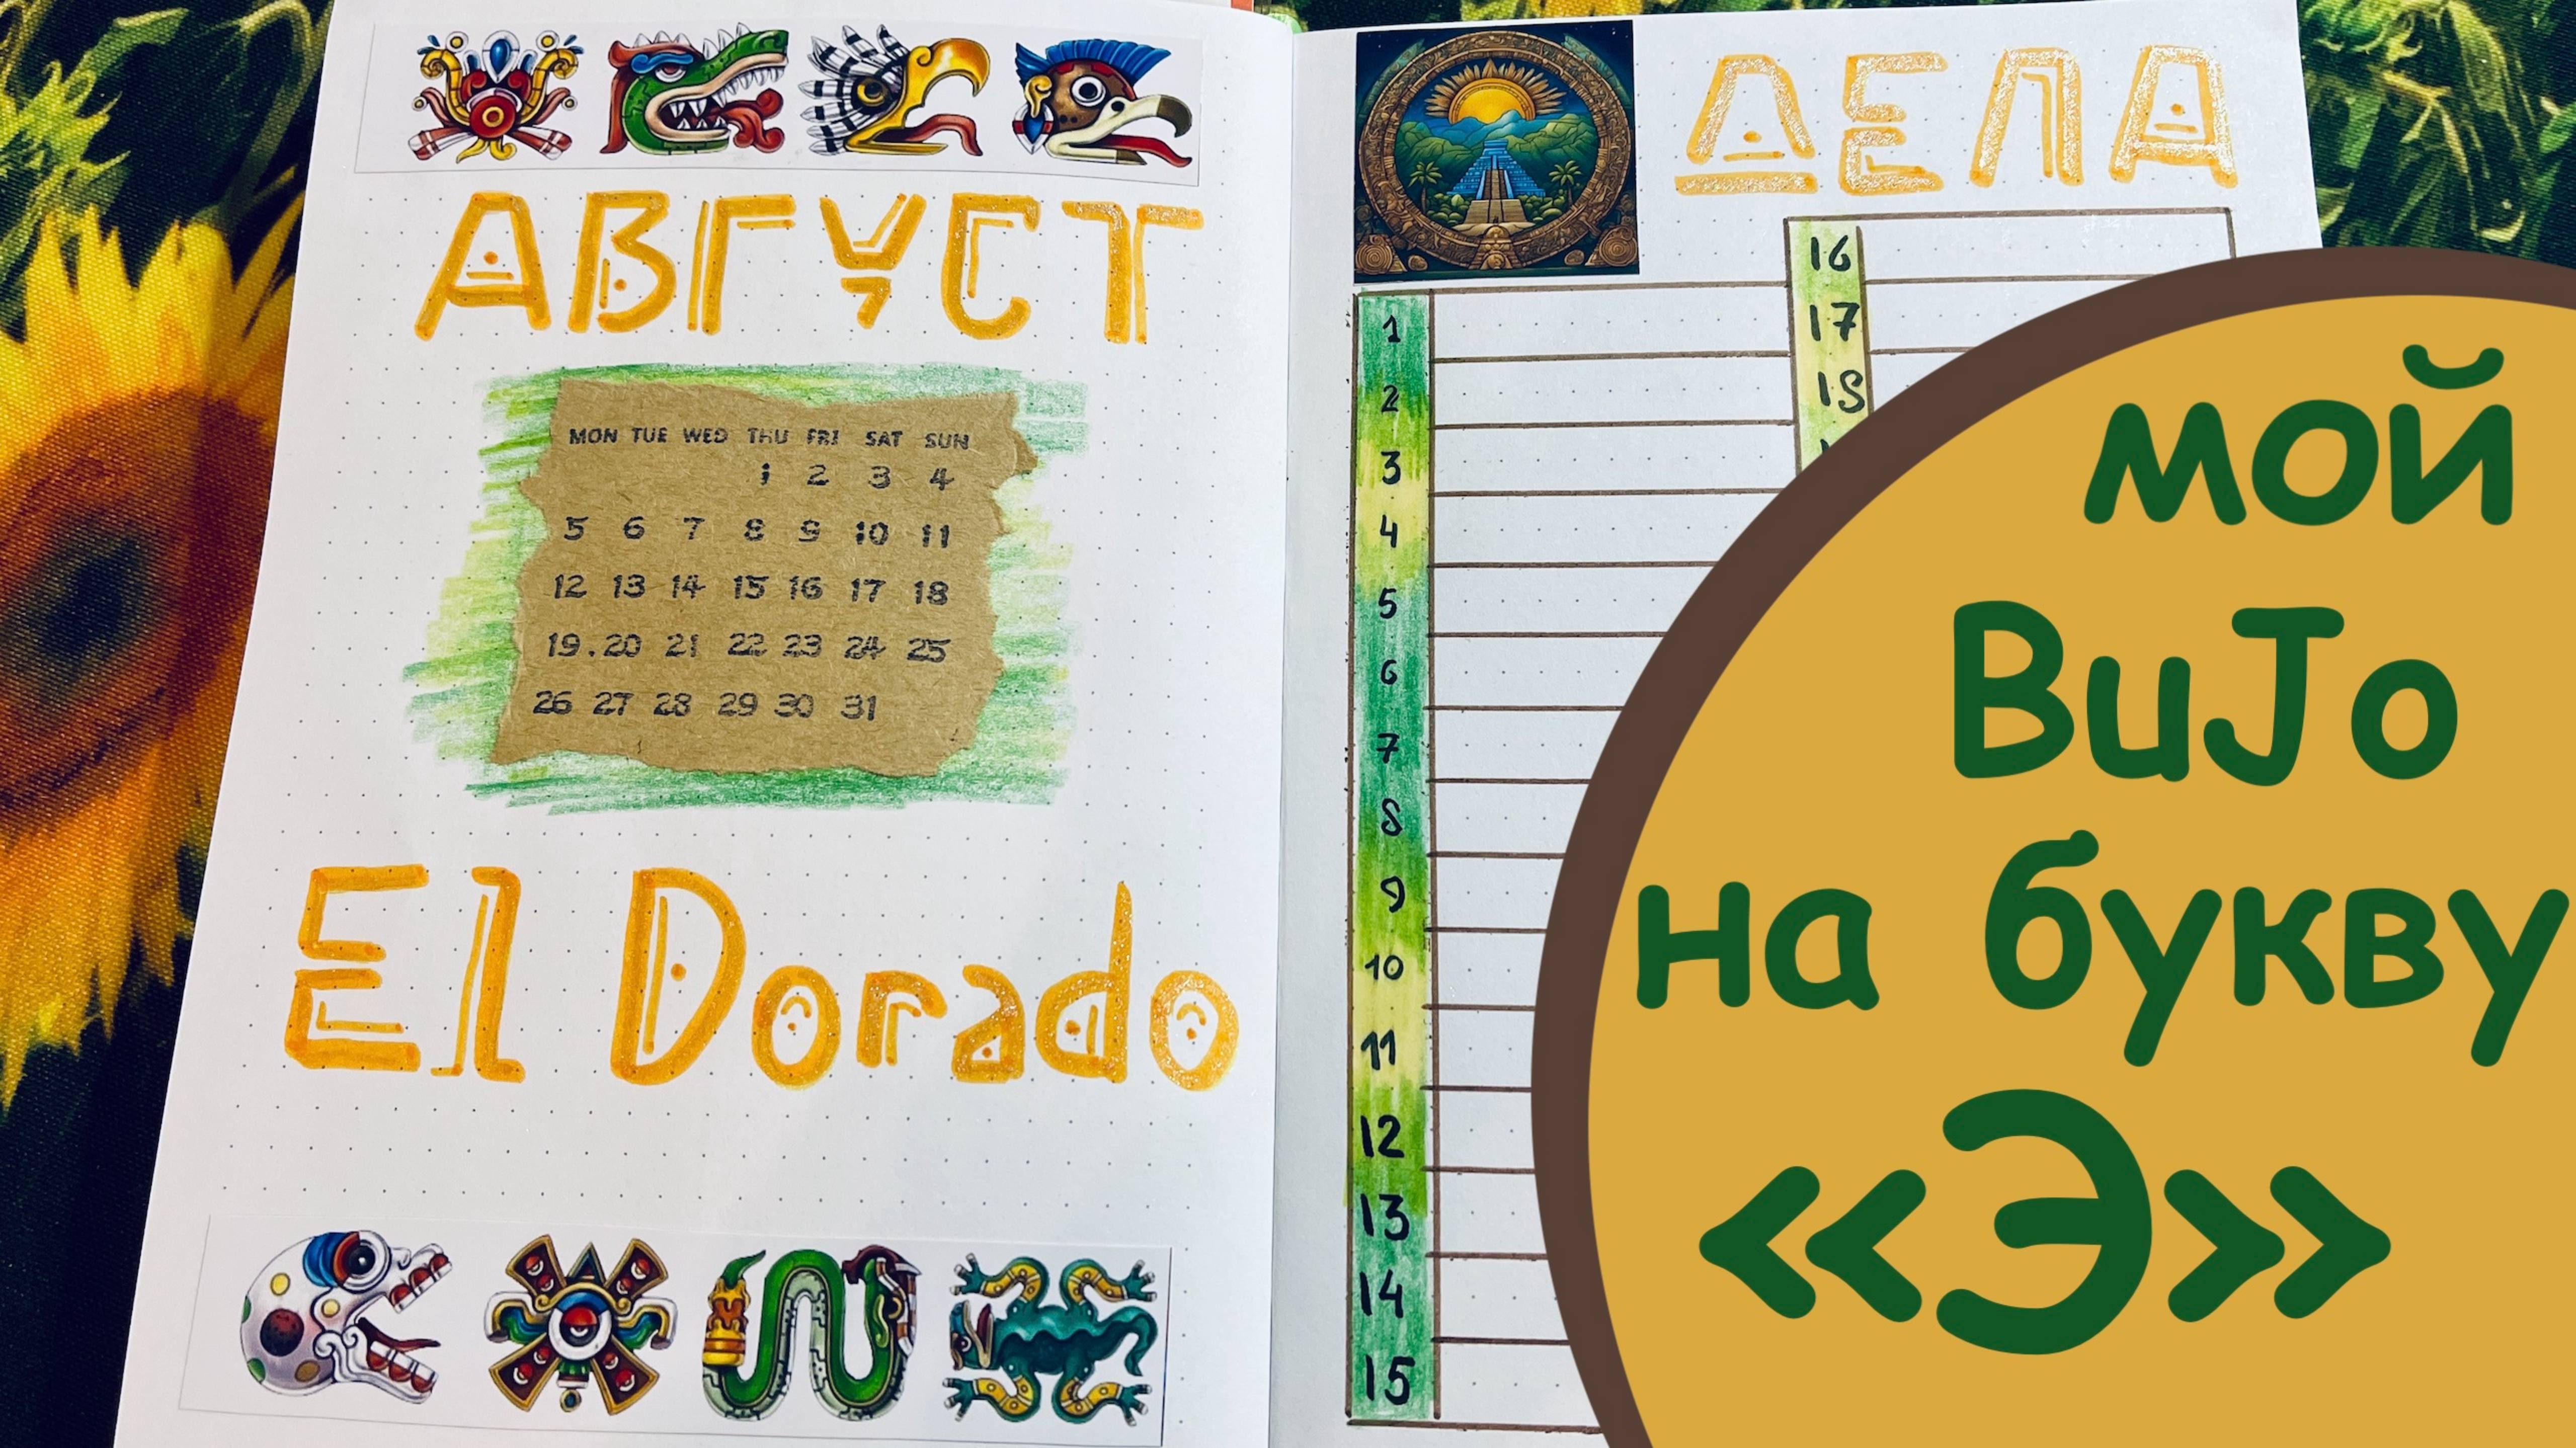 АВГУСТ
MON TUE WED THU FRI SAT SUN
1 2 3 4
5 6 7 8 9 10 11
12 13 14 15 16 17 18
19.20 21 22 23 24 25
26 27 28 29 30 31
El Dorado
ДЕЛА
1
2
3
4
5
6
7
8
9
10
11
12
13
14
15
16
17
18
мой
BuJo
на букву
«Э»